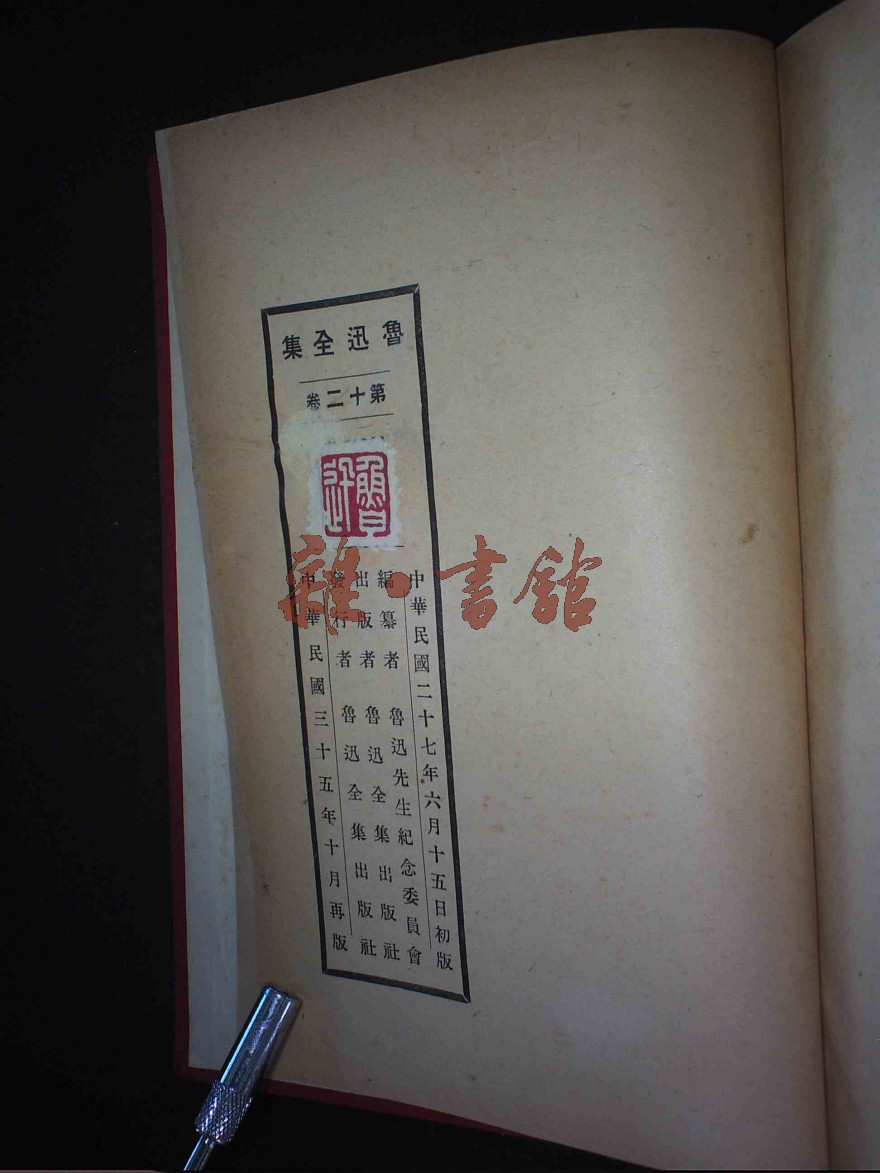 魯迅全集
第十二卷
魯迅
中華民國二十七年六月十五日初版
編纂者 魯迅先生紀念委員會
出版者 魯迅全集出版社
發行者 魯迅全集出版社
中華民國三十五年十月再版
雜·書館